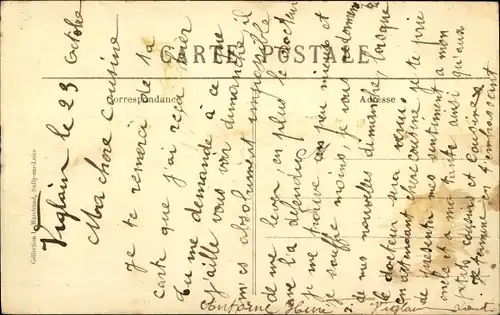 CARTE POSTALE
Correspondance
Adresse
Collection L. Marchand, Sully-sur-Loire
Viglain le 23 octobre
Ma chère cousine
Je te remerci de ta
carte que j'ai reçu hier
tu me demande à ce que
j'aille vous voir dimanche il
m'es absolument impossible
de me lever en plus le docteur
me la défendu
je me trouve un peu mieux et
je souffre moins, je vous redonnerai
de mes nouvelles dimanche, lorsque
le docteur sera venu
en attendant chère cousine je te prie
de présenter mes sentiment a mon
oncle et a ma tante ainsi qu'aux
petits cousins et cousines
Je termine en t'embrassant
à Viglain